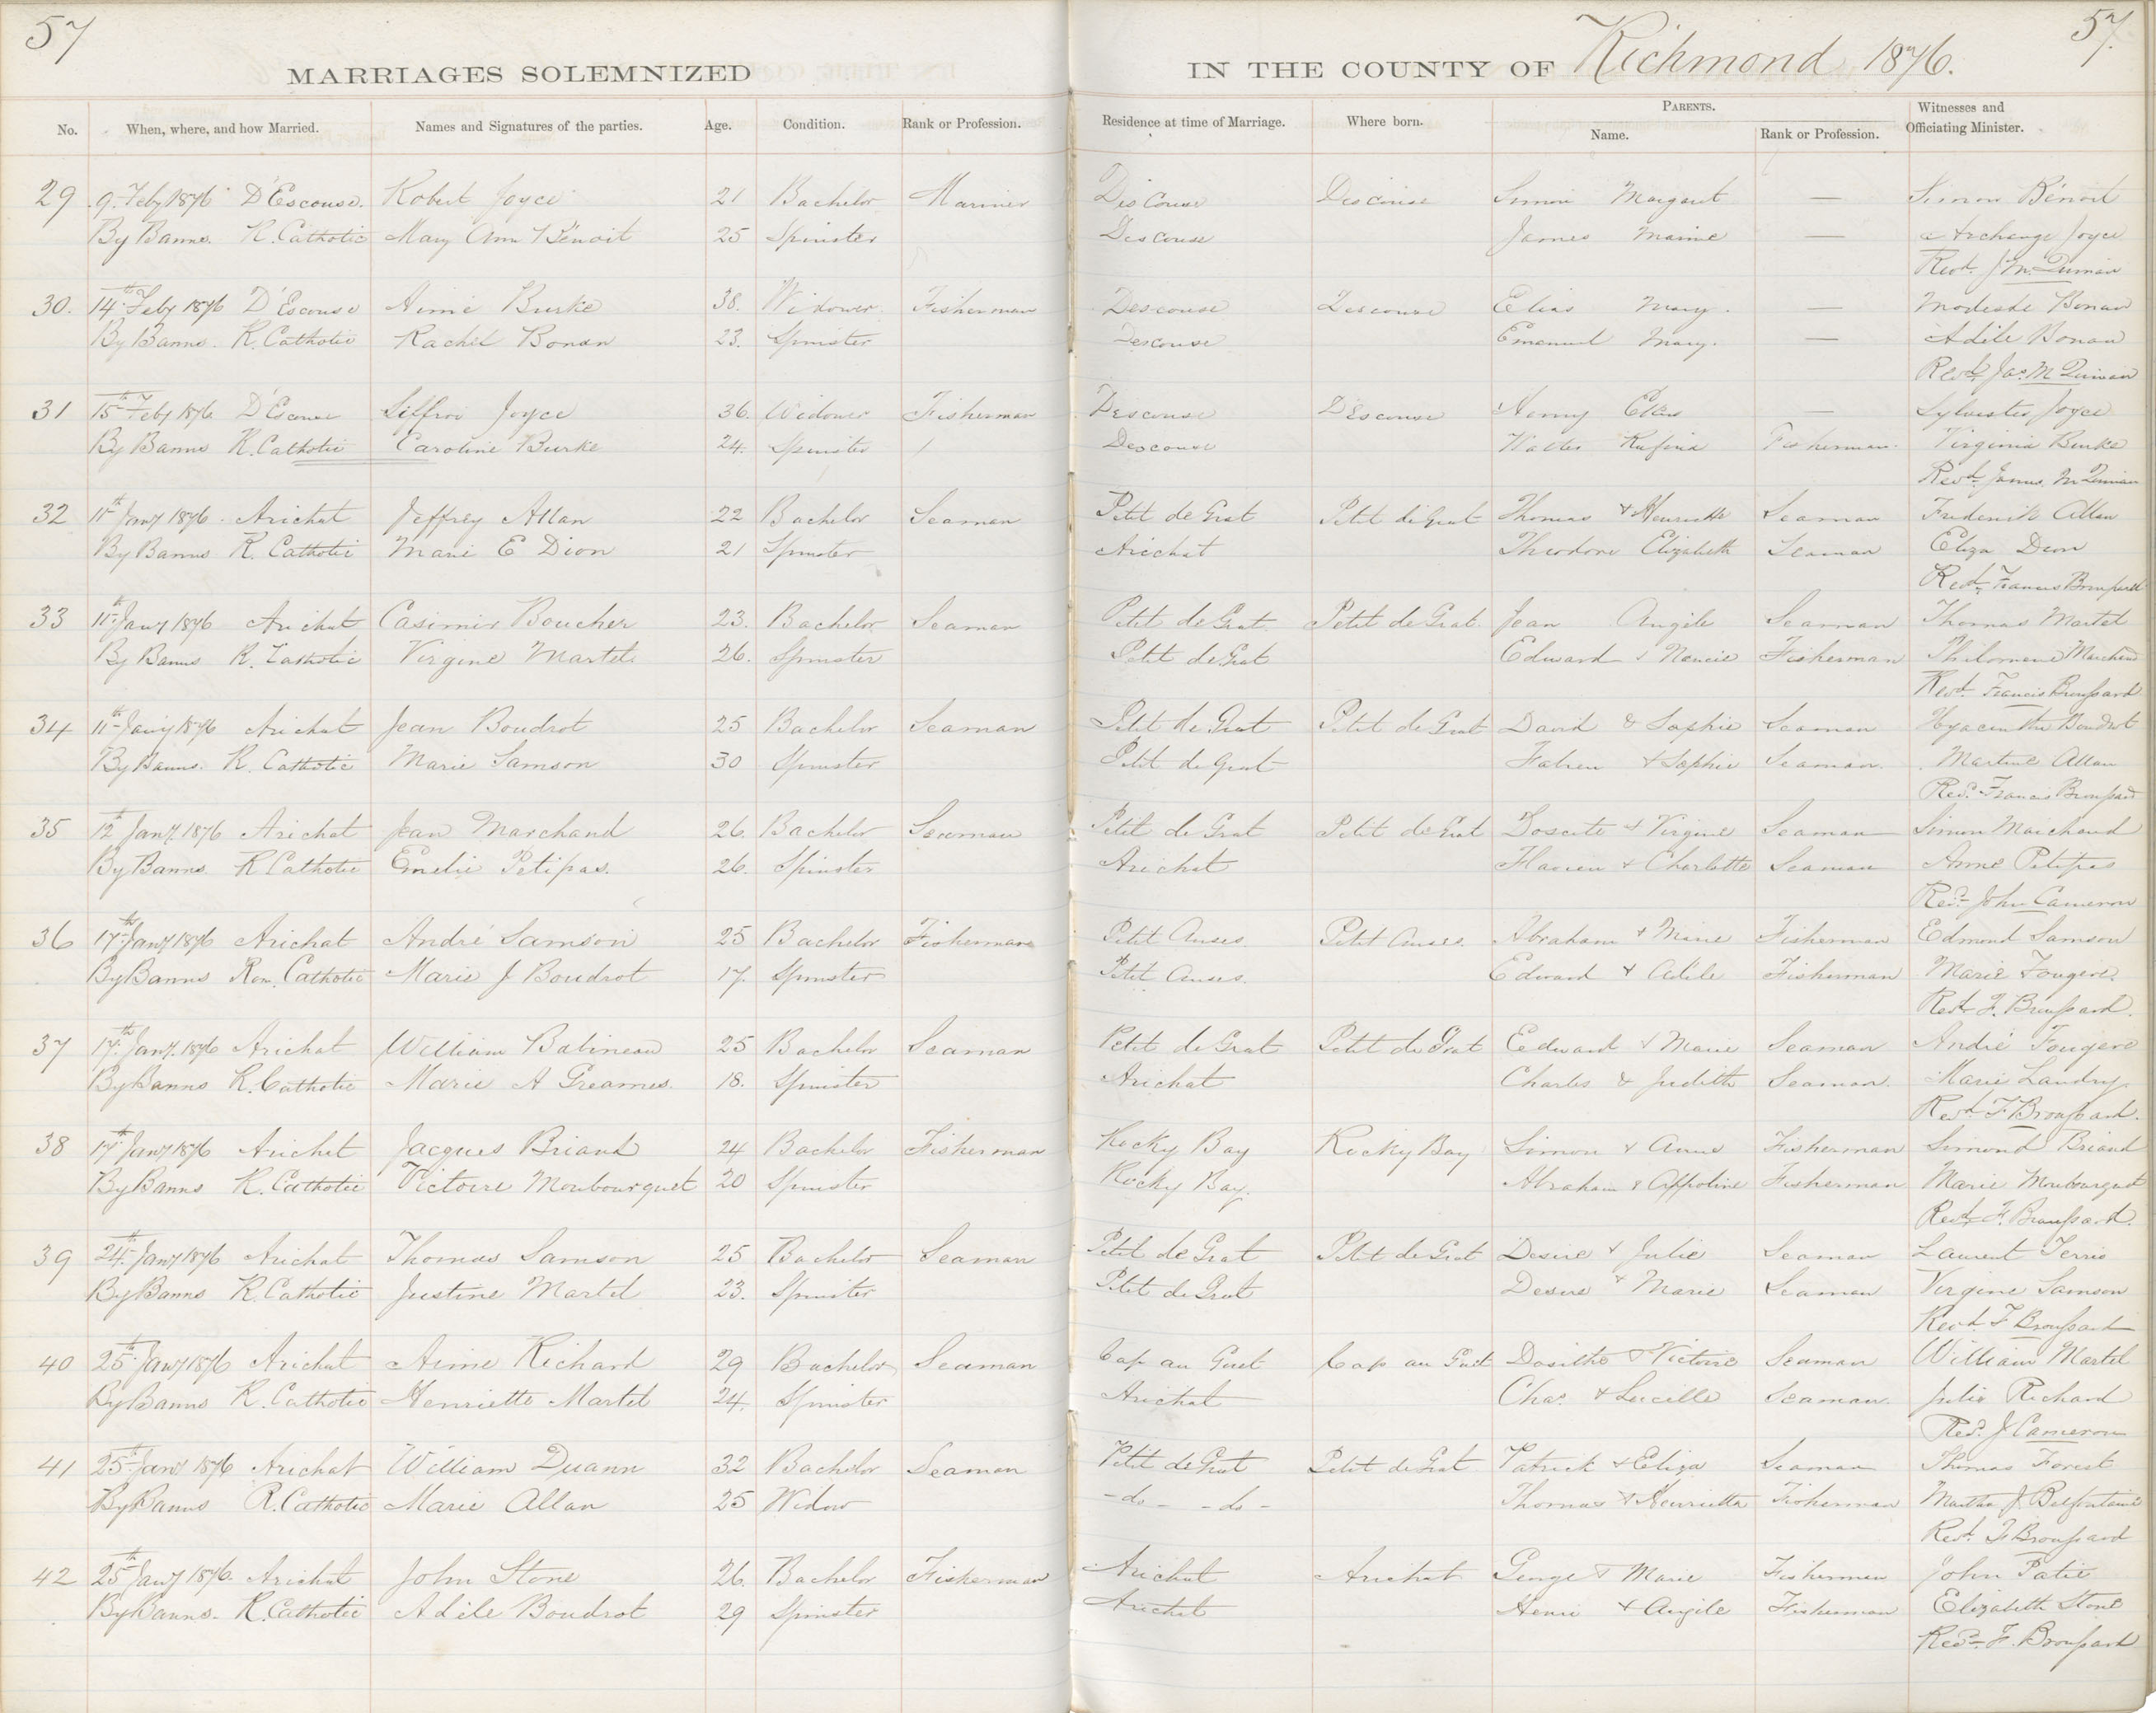 57
57.
MARRIAGES SOLEMNIZED IN THE COUNTY OF Richmond 1876.
No. When, where, and how Married. Names and Signatures of the parties. Age. Condition. Rank or Profession. Residence at time of Marriage. Where born. PARENTS. Name. Rank or Profession. Witnesses and Officiating Minister.
29 9. Feby 1876 D'Escouse. Robert Joyce 21 Bachelor Mariner DesCouse Descouse Simon Margaret — Simon Bénoit
By Banns. R. Catholic Mary Ann Bénoit 25 Spinster Descouse James — Archange Joyce
Revd. J McQuinan
30. 14th Feby 1876 D'Escouse Aimé Burke 38. Widower. Fisherman Descouse Descouse Elias Mary. — Modeste Bonan
By Banns. R. Catholic Rachel Bonan 23. Spinster Descouse Emanuel Mary. — Adile Bonan
Revd. Jas. McQuinan
31 15th Feby 1876. D'Escouse Joyce 36. Widower Fisherman Descouse D'Escouse Henry — Sylvester Joyce
By Banns R. Catholic Caroline Burke 24. Spinster Descouse Walter Fisherman. Virginia Burke
Revd. James McQuinan
32 11th Jany 1876. Arichat Jeffrey Allan 22 Bachelor Seaman Petit de Grat Petit de Grat Thomas & Henriette Seaman Frederick Allan
By Banns R. Catholic Marie E Dion 21 Spinster Arichat Theodore Elizabeth Seaman Eliza Dion
Revd. Francis Broussard
33 11th Jany 1876 Arichat Casimir Boucher 23. Bachelor Seaman Petit de Grat Petit de Grat. Jean Angile Seaman Thomas Martel
By Banns R. Catholic Virgine Martel. 26. Spinster Petit de Grat Edward & Nancie Fisherman Philomene Marchand
Revd. Francis Broussard
34 11th Jany 1876 Arichat Jean Boudrot 25 Bachelor Seaman Petit de Grat Petit de Grat David & Sophie Seaman Hyacinthe Boudrot
By Banns. R. Catholic Marie Samson 30 Spinster Petit de Grat & Sophie Seaman. Martine Allan
Revd. Francis Broussard
35 12th Jany. 1876 Arichat Jean Marchand 26. Bachelor Seaman Petit de Grat Petit de Grat & Virgine Seaman Simon Marchand
By Banns. R Catholic Emelie Petipas. 26. Spinster Arichat & Charlotte Seaman Anne Petipas
Revd. John Cameron
36 17th Jany 1876 Arichat André Samson 25 Bachelor Fisherman Petit Anses. Petit Anses. Abraham & Marie Fisherman Edmond Samson
By Banns Rom. Catholic Marie J Boudrot 17. Spinster Petit Anses. Edward & Adile Fisherman Marie Fougere.
Revd. F. Broussard.
37 17th Jany. 1876 Arichat William Babineau 25 Bachelor Seaman Petit de Grat Petit de Grat Edward & Marie Seaman André Fougere
By Banns R. Catholic Marie A Greames. 18. Spinster Arichat Charles & Judith Seaman. Marie Landry
Revd. F Broussard.
38 17th Jany 1876 Arichat Jacques Briand 24 Bachelor Fisherman Rocky Bay Rocky Bay Simon & Anne Fisherman Simond Briand
By Banns R. Catholic Victoire Monbourquet 20 Spinster Rocky Bay. Abraham & Appoline Fisherman Marie Monbourquet
Revd. F. Broussard.
39 24th Jany 1876 Arichat Thomas Samson 25 Bachelor Seaman Petit de Grat Petit de Grat Desire & Julie Seaman Laurent Terrio
By Banns R. Catholic Justine Martel 23. Spinster Petit de Grat Desire & Marie Seaman Virgine Samson
Revd F Broussard
40 25th Jany 1876 Arichat Aimé Richard 29 Bachelor Seaman Cap au Guet Cap au Guet Dosithe & Victoire Seaman William Martel
By Banns R. Catholic Henriette Martel 24. Spinster Arichat Chas. & Lucille Seaman. Julie Richard
Revd. J Cameron
41 25th Jany 1876 Arichat William Duann 32 Bachelor Seaman Petit de Grat Petit de Grat Patrick & Eliza Seaman Thomas Forest
By Banns R. Catholic Marie Allan 25 Widow -do- -do- Thomas & Henrietta Fisherman Martha J Belfontaine
Revd. F Broussard
42 25th Jany 1876. Arichat John Stone 26. Bachelor Fisherman Arichat Arichat George & Marie Fisherman John Patie
By Banns. R. Catholic Adéle Boudrot 29 Spinster Arichat Henri & Angile Fisherman Elizabeth Stone
Revd. F. Broussard